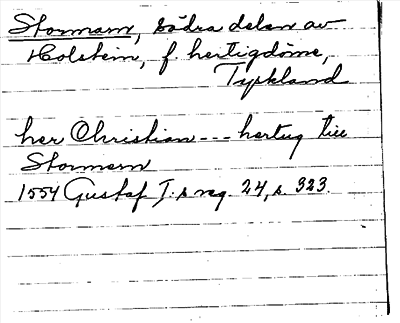 Stormarn, södra delen av
Holstein, f. hertigdöme,
Tyskland
her Christian --- hertug till
Stormarn
1554 Gustaf I:s reg. 24, s. 323.